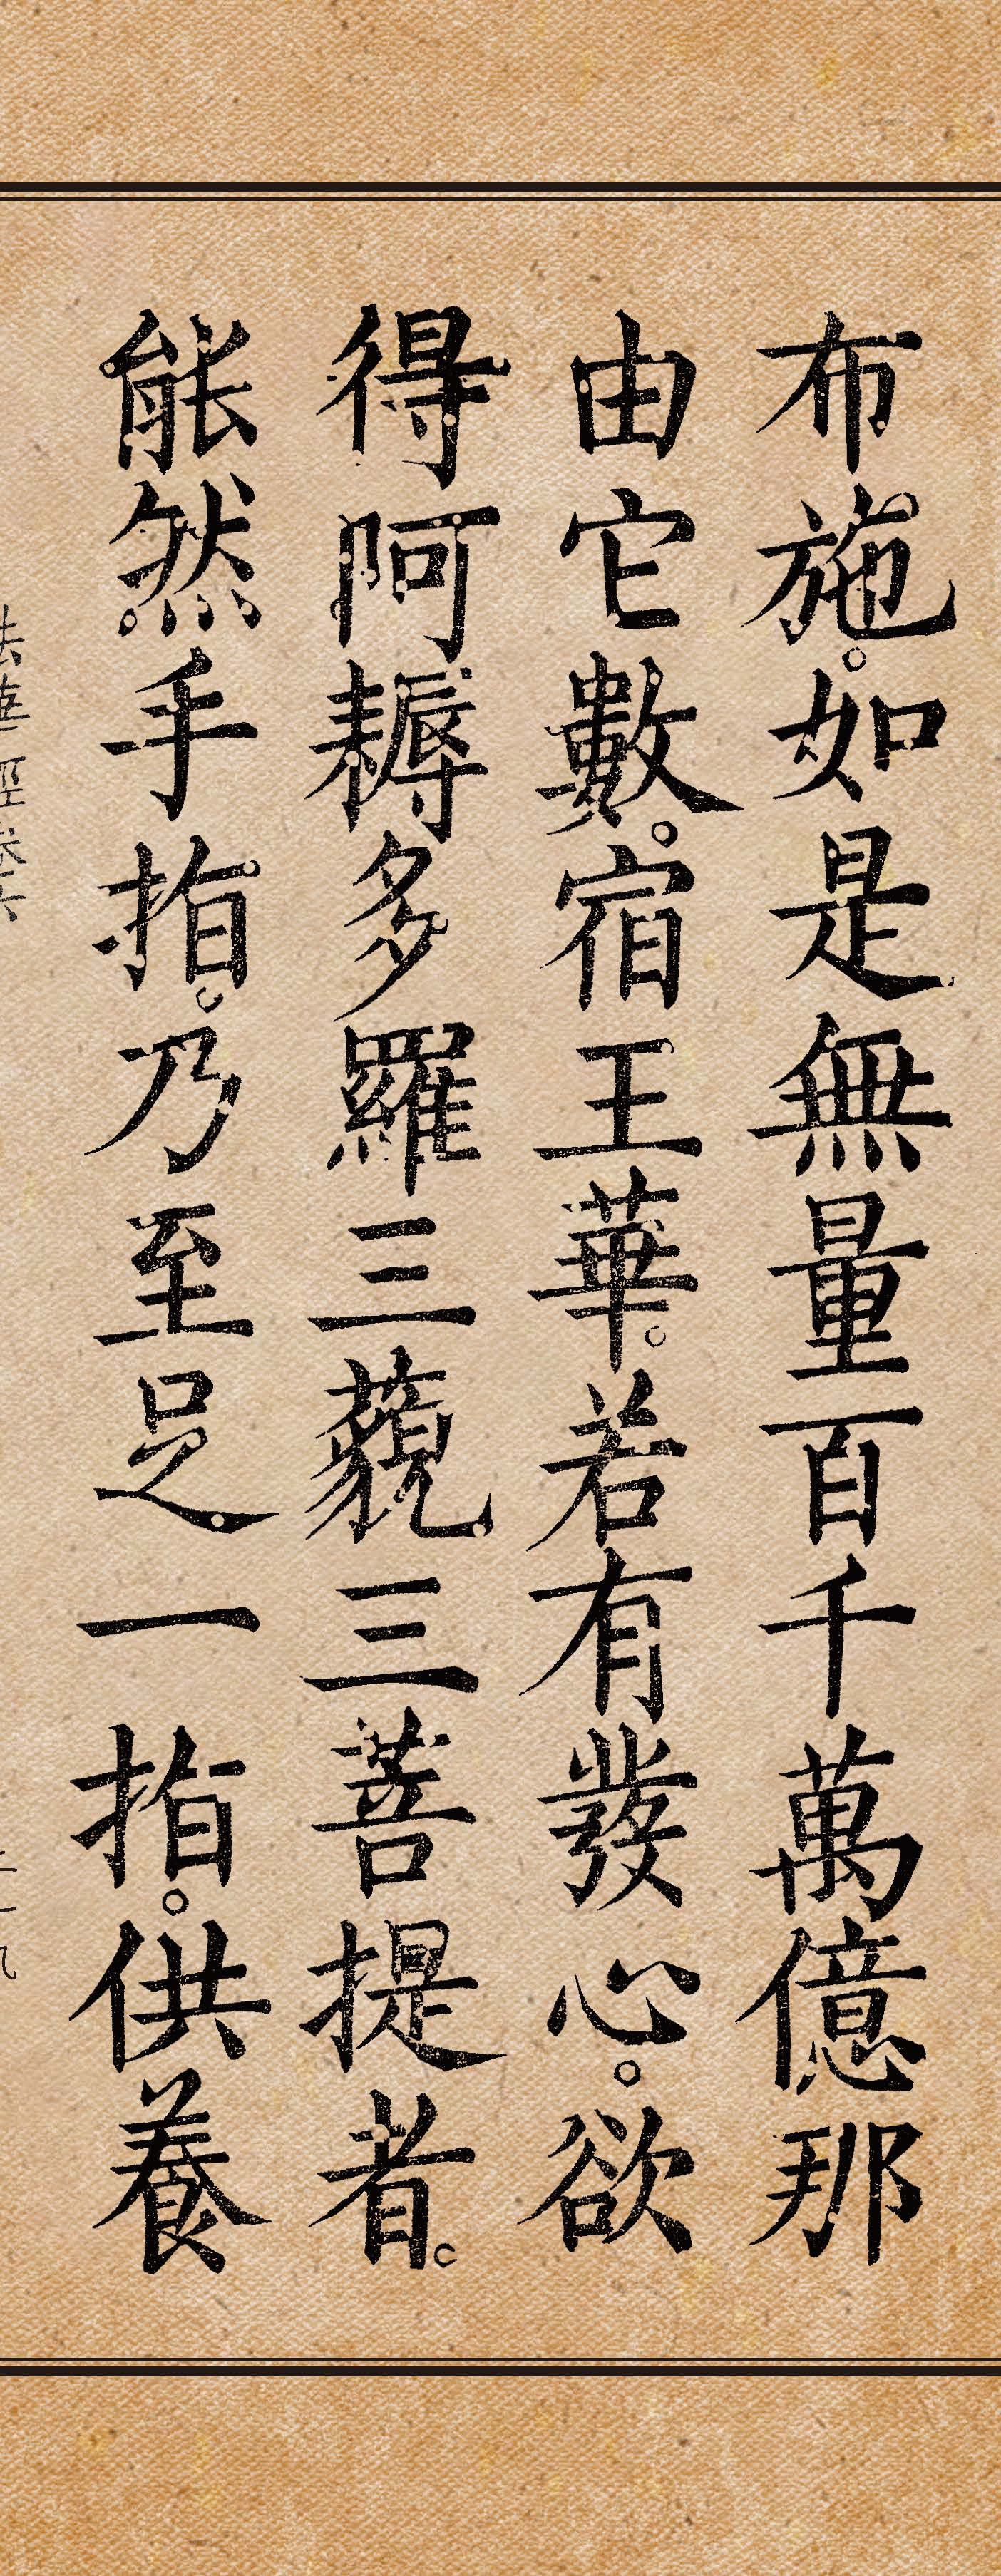 布施。如是無量百千萬億那
由它數。宿王華。若有發心。欲
得阿耨多羅三藐三菩提者。
能然手指。乃至足一指。供養
法華經卷六